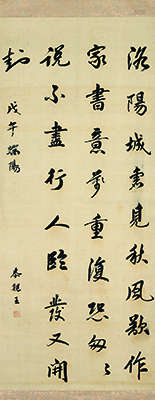 洛陽城裏見秋風欲作
家書意萬重復恐匆々
說不盡行人臨發又開
封
戊午端陽
恭親王